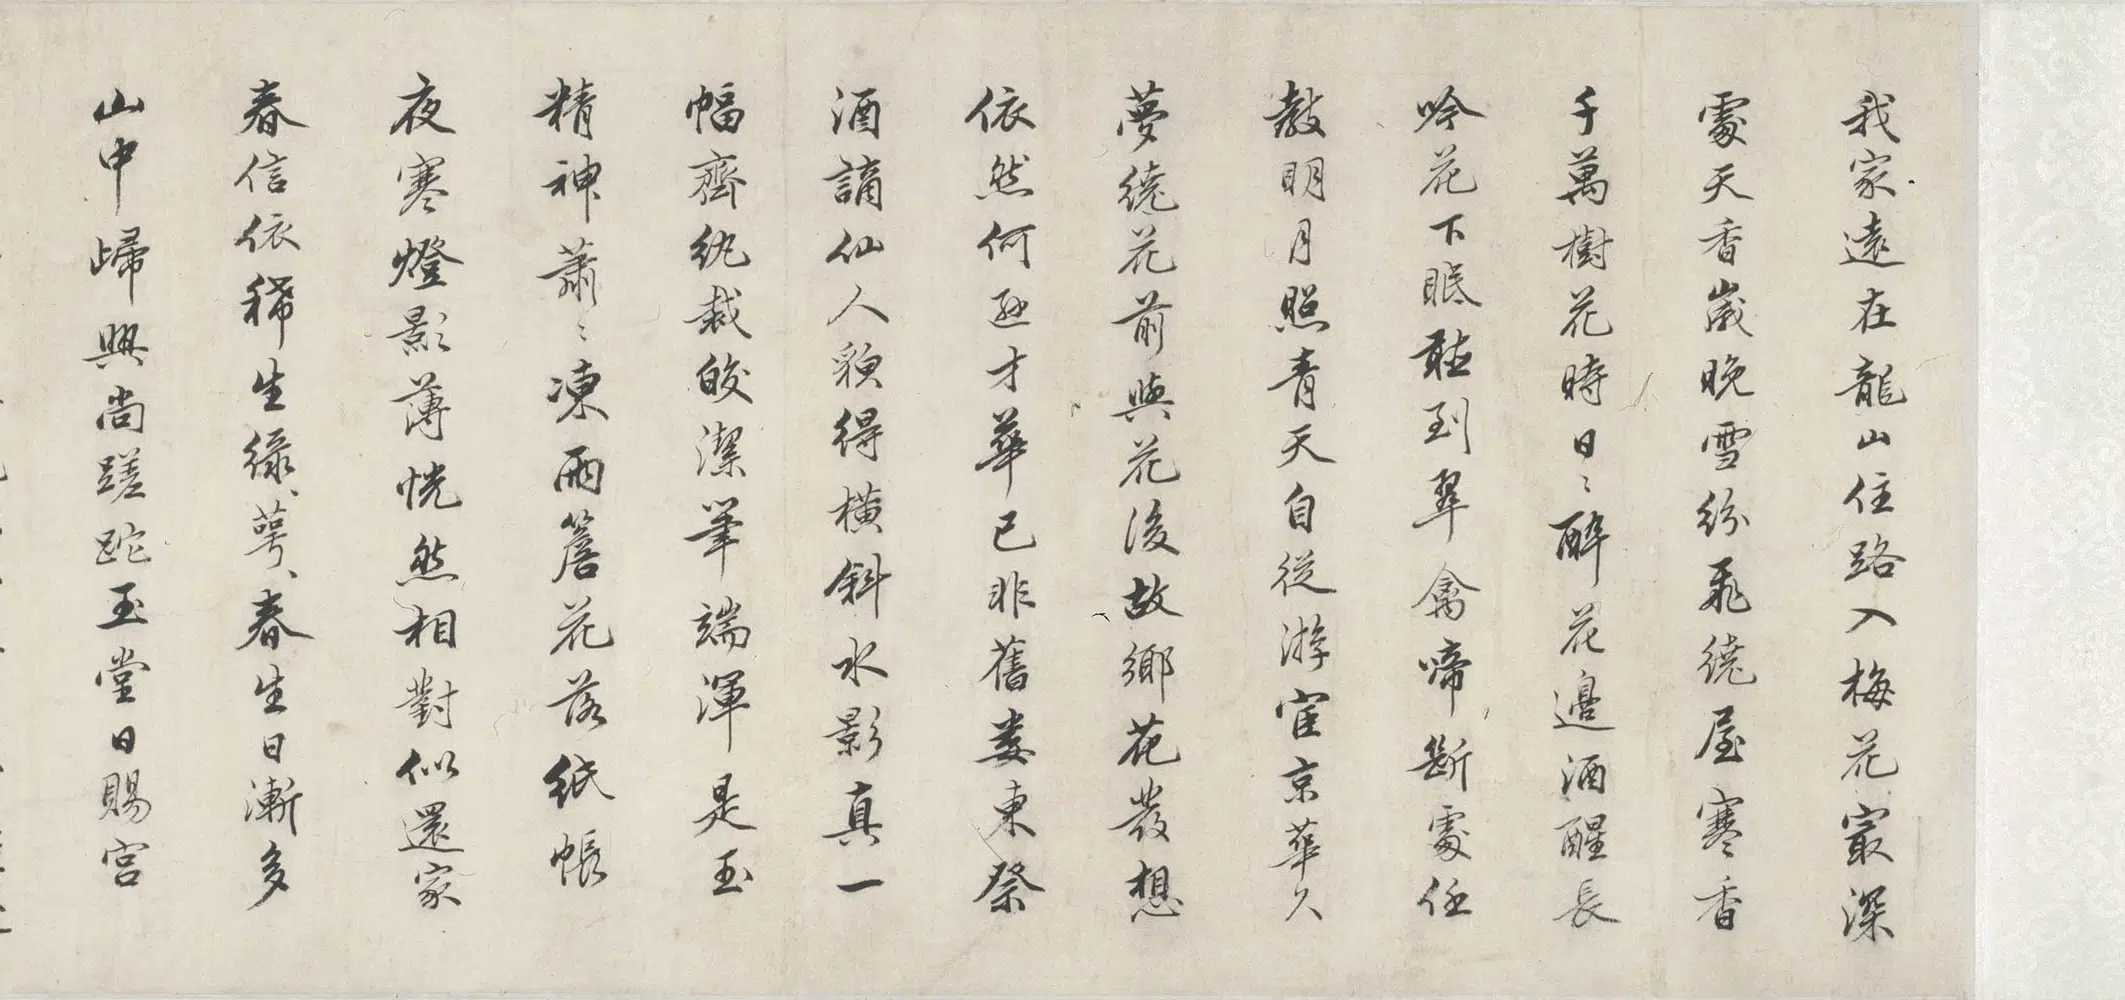 我家遠在龍山住路入梅花最深
處天香歲晚雪紛飛繞屋寒香
千萬樹花時日〻醉花邊酒醒長
吟花下眠聽到翠禽啼斷處任
教明月照青天自從游宦京華久
夢繞花前與花後故鄉花發想
依然何遜才華已非舊婁東祭
酒謫仙人貌得橫斜水影真一
幅齊紈裁皎潔筆端渾是玉
精神蕭〻凍雨簷花落紙帳
夜寒燈影薄恍然相對似還家
春信依稀生綠萼〻春生日漸多
山中歸興尚蹉跎玉堂日賜宮